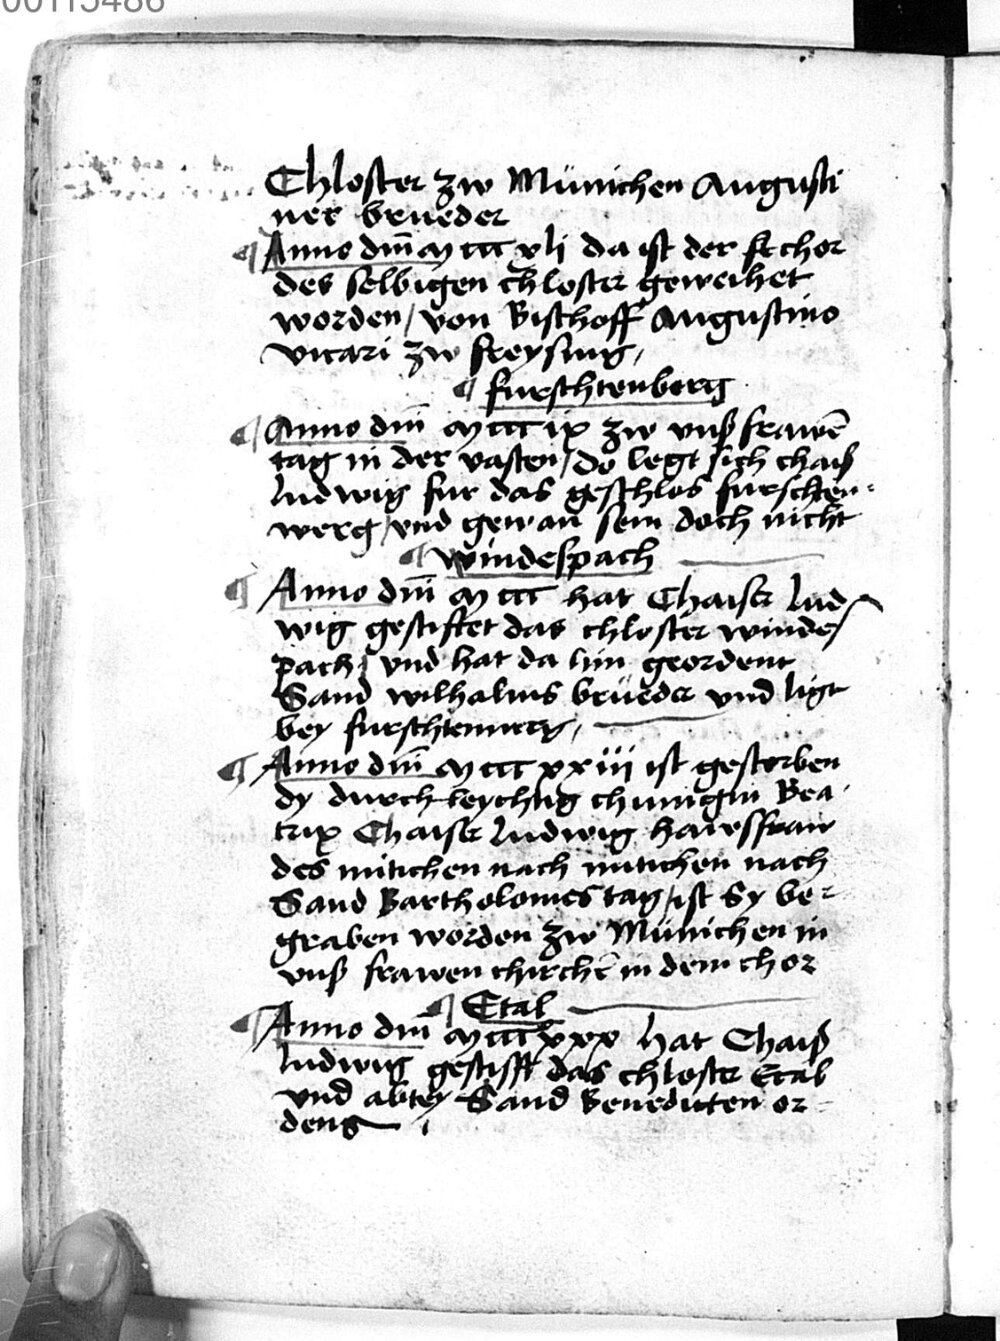 00115486
Chloster zw Münichen Augusti
ner brueder
¶ Anno dm̄ m ccc xli da ist der kchor
des selbigen chloster geweihet
worden / von Bischoff Augustino
vicari zw freysing,
¶ furschtenberg
¶ Anno dm̄ m ccc ix zw vnß frawē
tag in der vasten / do legt sich chaiß
ludwig fur das geschlos furschten-
werg / vnd gewan sein doch nicht
¶ windespach
¶ Anno dm̄ m ccc hat Chaiser lud
wig gestiftet das chloster windes
pach / vnd hat da hin geordent
Sand wilhalms brüeder vnd ligt
bey furschtenwerg,
¶ Anno dm̄ m ccc xxiii ist gestorben
dy durchleychtig chunigin Bea-
trix Chaiser ludwig hawsfraw
des mitichen nach mitichen nach
Sand Bartholomes tag / ist Sy be-
graben worden zw Münichen in
vnß frawen chirchē in dem chor
¶ Etal
¶ Anno dm̄ m ccc xxx hat Chaiß
ludwig gestifft das chloster Etal
vnd abtey Sand Benedicten or
dens